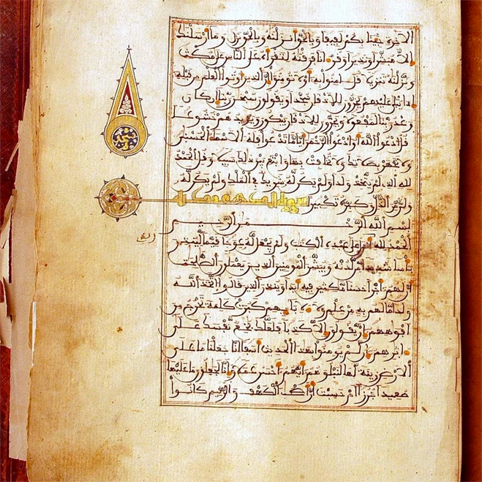 الاخرة جئنا بكم لفيفا وبالحق انزلنه وبالحق نزل وما ارسلنك
الا مبشرا ونذيرا وقرءانا فرقنه لتقراه على الناس على مكث
ونزلنه تنزيلا قل امنوا به او لا تومنوا ان الذين اوتوا العلم من قبله
اذا يتلى عليهم يخرون للاذقان سجدا ويقولون سبحن ربنا ان كان
وعد ربنا لمفعولا ويخرون للاذقان يبكون ويزيدهم خشوعا
قل ادعوا الله او ادعوا الرحمن ايا ما تدعوا فله الاسماء الحسنى
ولا تجهر بصلاتك ولا تخافت بها وابتغ بين ذلك سبيلا وقل الحمد
لله الذي لم يتخذ ولدا ولم يكن له شريك في الملك ولم يكن له
ولي من الذل وكبره تكبيرا
بسم الله الرحمن الرحيم
الحمد لله الذي انزل على عبده الكتب ولم يجعل له عوجا قيما لينذر
باسا شديدا من لدنه ويبشر المومنين الذين يعملون الصلحت
ان لهم اجرا حسنا مكثين فيه ابدا وينذر الذين قالوا اتخذ الله
ولدا ما لهم به من علم ولا لابايهم كبرت كلمة تخرج من
افوههم ان يقولون الا كذبا فلعلك بخع نفسك على
اثرهم ان لم يومنوا بهذا الحديث اسفا انا جعلنا ما على
الارض زينة لها لنبلوهم ايهم احسن عملا وانا لجعلون ما عليها
صعيدا جرزا ام حسبت ان اصحب الكهف والرقيم كانوا